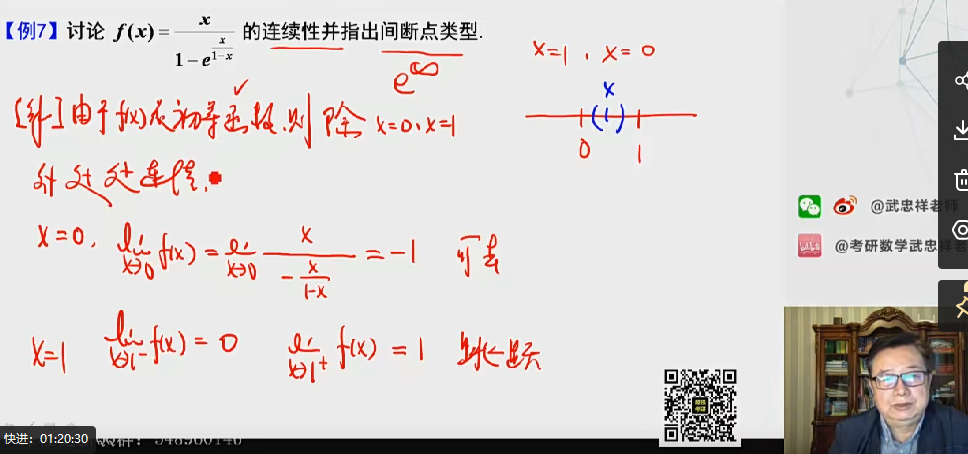 【例7】讨论 f(x)=x/(1-e^(x/(1-x))) 的连续性并指出间断点类型.
e^∞
x=1, x=0
x
0 1
[解]由于f(x)为初等函数,则除 x=0,x=1
外处处连续.
x=0, lim x→0 f(x) = lim x→0 x/(-x/(1-x)) = -1 可去
x=1 lim x→1⁻ f(x) = 0 lim x→1⁺ f(x) = 1 跳跃
@武忠祥老师
@考研数学武忠祥
快进: 01:20:30